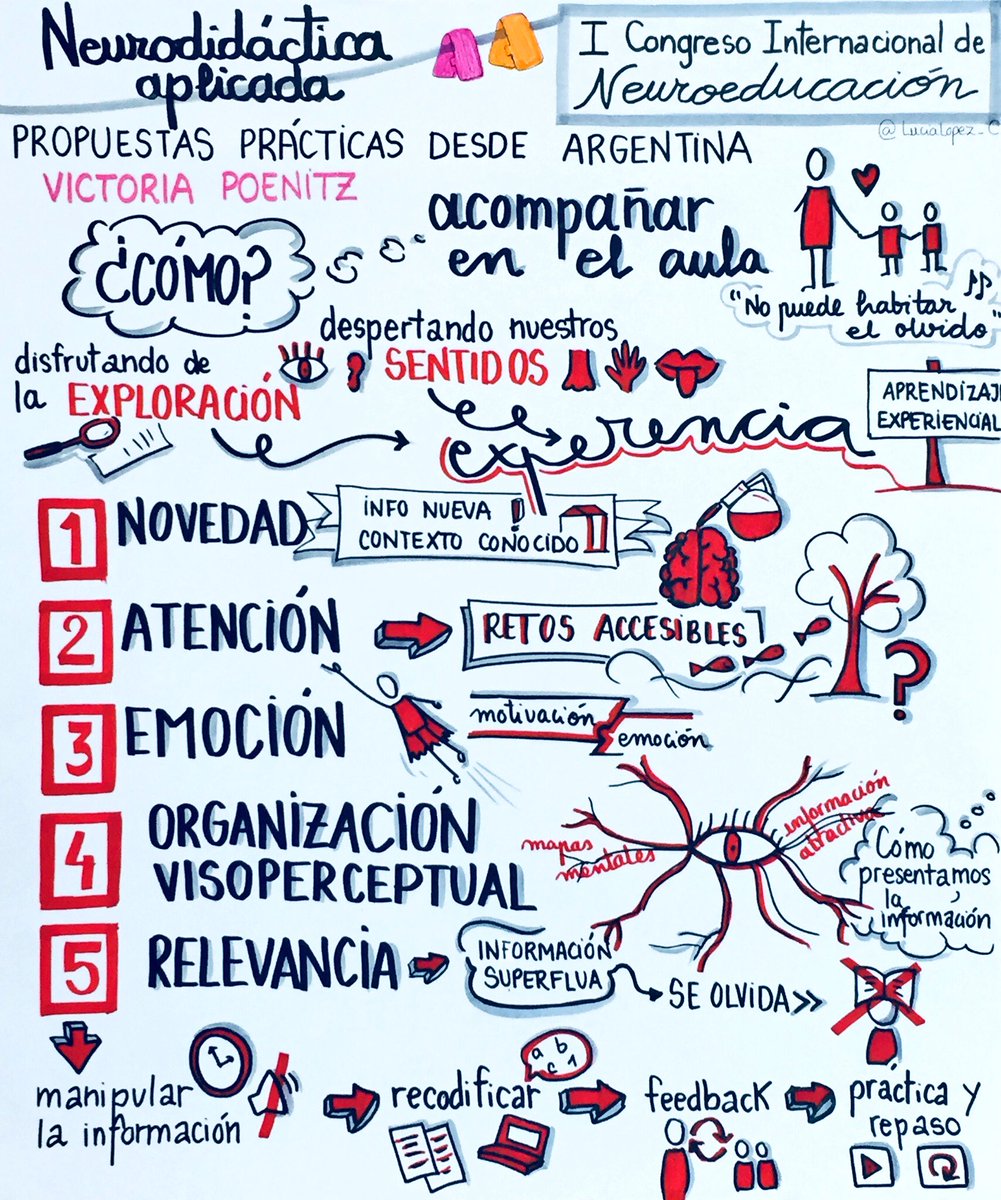 Neurodidáctica
aplicada
I Congreso Internacional de
Neuroeducación
PROPUESTAS PRÁCTICAS DESDE ARGENTINA
VICTORIA POENITZ
¿CÓMO?
acompañar
en el aula
"No puede habitar
el olvido"
despertando nuestros
SENTIDOS
disfrutando de
la EXPLORACIÓN
experencia
APRENDIZAJ
EXPERIENCIAL
1 NOVEDAD
INFO NUEVA
CONTEXTO CONOCIDO
2 ATENCIÓN
RETOS ACCESIBLES
?
3 EMOCIÓN
motivación
emoción
4 ORGANIZACIÓN
VISOPERCEPTUAL
mapas
mentales
información
atractiva
Cómo
presentamos
la
información
5 RELEVANCIA
INFORMACIÓN
SUPERFLUA
SE OLVIDA >>
manipular
la información
a b
c 1
recodificar
feedback
práctica y
repaso